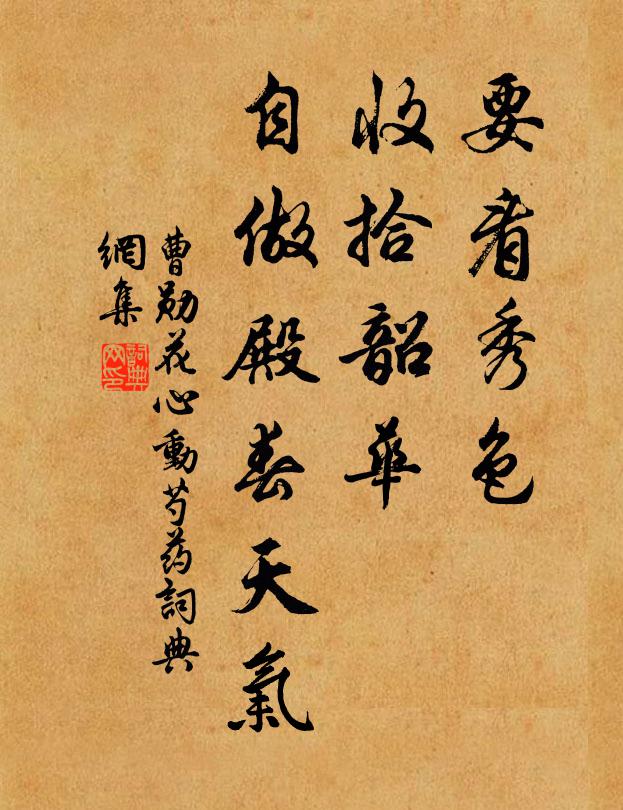 要看秀色
收拾韶華
自做殿春天氣
曹勛花心動芍药詞典
網集
詞典
网印